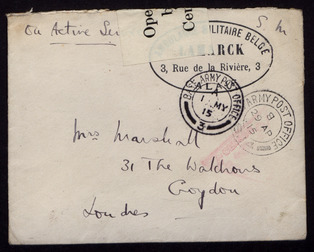 On Active Ser
S M
Ope
by
Ce
MILITAIRE BELGE
LAMARCK
3, Rue de la Rivière, 3
BASE ARMY POST OFFICE
MY
15
3
ARMY POST OFFICE
B
29 AP
15
Mrs Marshall
31 The Waldrons
Croydon
Londres